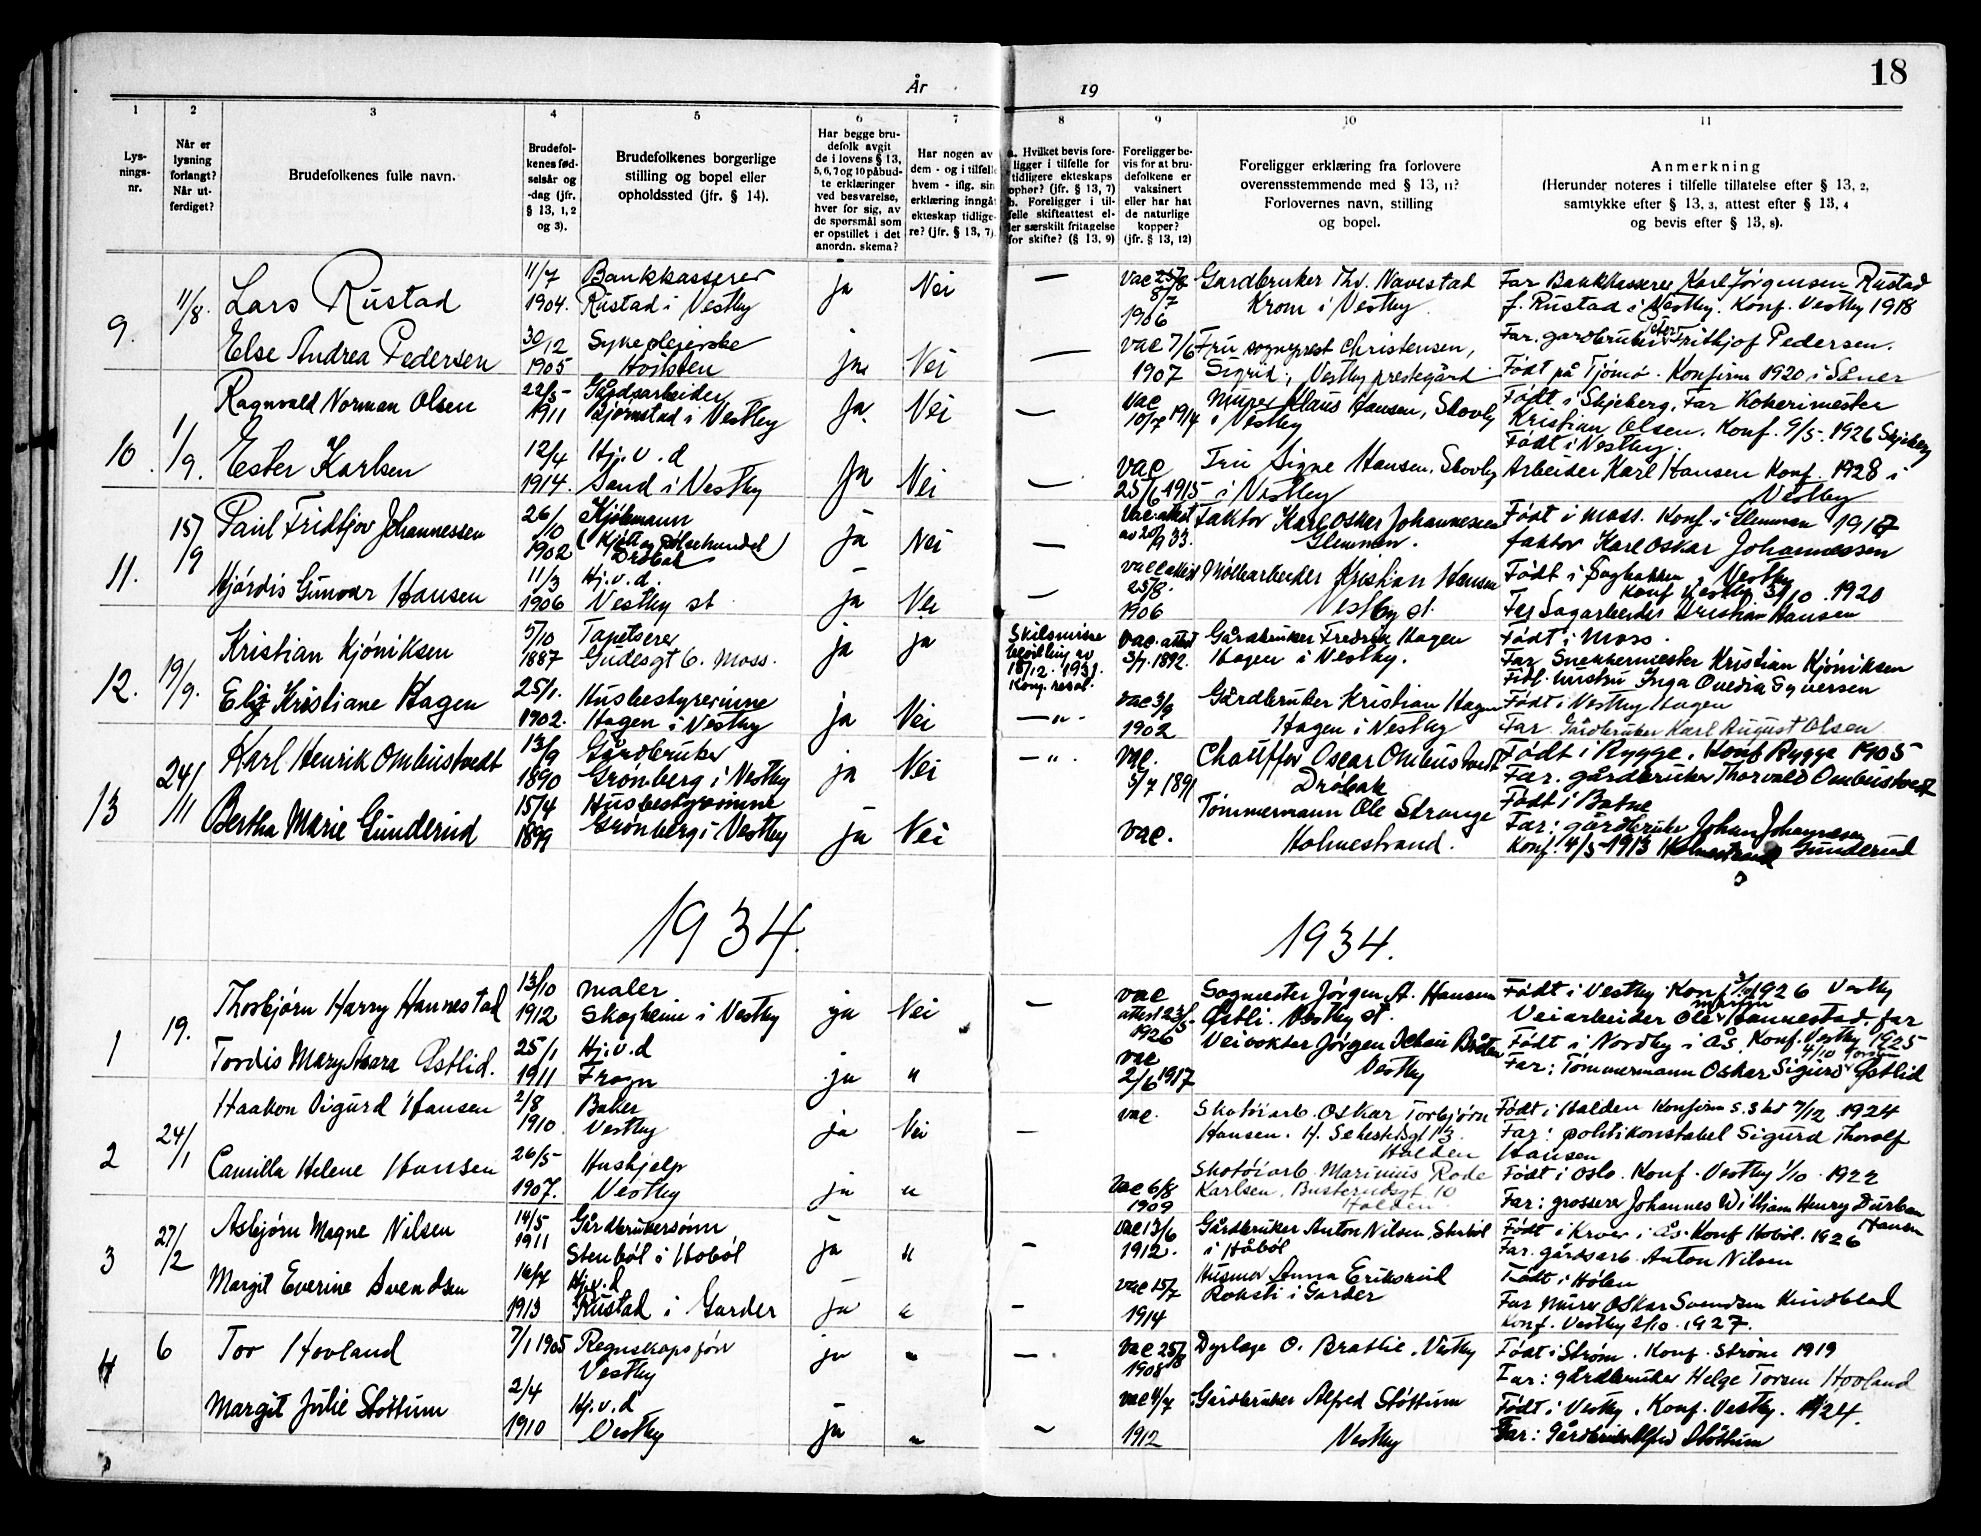 18
År
19
1 2 3 4 5 6 7 8 9 10 11
Lys-
nings-
nr.
Når er
lysning
forlangt?
Når ut-
ferdiget?
Brudefolkenes fulle navn.
Brudefol-
kenes fød-
selsår og
-dag (jfr.
§ 13, 1, 2
og 3).
Brudefolkenes borgerlige
stilling og bopel eller
opholdssted (jfr. § 14).
Har begge bru-
defolk avgit
de i lovens § 13,
5, 6, 7 og 10 påbud-
te erklæringer
ved besvarelse,
hver for sig, av
de spørsmål som
er opstillet i det
anordn. skema?
Har nogen av
dem - og i tilfelle
hvem - iflg. sin
erklæring inngåt
ekteskap tidlige-
re? (jfr. § 13, 7).
a. Hvilket bevis fore-
ligger i tilfelle for
tidligere ekteskaps
ophør? (jfr. § 13, 7)
b. Foreligger i til-
felle skifteattest el-
ler særskilt fritagelse
for skifte? (§ 13, 9)
Foreligger be-
vis for at bru-
defolkene er
vaksinert
eller har hat
de naturlige
kopper?
(jfr. § 13, 12)
Foreligger erklæring fra forlovere
overensstemmende med § 13, 11?
Forlovernes navn, stilling
og bopel.
Anmerkning
(Herunder noteres i tilfelle tillatelse efter § 13, 2,
samtykke efter § 13, 3, attest efter § 13, 4
og bevis efter § 13, 8).
9. 11/8. Lars Rustad
11/7 1904.
Bankkasserer
Rustad i Vestby
ja Nei —
vac 8/7 1906
Gardbruker Thv. Navestad
Krom i Vestby
Far Bankkasserer Karl Jørgensen Rustad
f. Rustad i Vestby. Konf. Vestby 1918
Else Andrea Pedersen
30/12 1905
Sykepleierske
Hölsten
ja Nei —
vac 7/6 1907
Fru sogneprest Christensen,
Sigrid, Vestby prestegård
Far. gardbruker Peter Fritkjof Pedersen.
Født på Tjømø. Konfirm 1920 i Såner
10. 1/9. Ragnvald Norman Olsen
22/5- 1911
Gårdsarbeider
Bjørnstad i Vestby
Ja. Nei —
vac 10/7 1914
Murer Klaus Hansen, Skovly
i Vestby
Født i Skjeberg, Far Kokerimester
Kristian Olsen. Konf. 9/5-1926 Skjeberg
Ester Karlsen
12/4 1914.
Hj. v. d
Sand i Vestby
Ja Nei —
vac 25/6 1915
Fru Signe Hansen, Skovly
i Vestby
Født i Vestby
Arbeider Karl Hansen Konf. 1928 i
Vestby
11. 15/9 Paul Fridtjov Johannessen
26/10 1902
Kjøbmann
(Kjøtt og Pølsehandel)
Drøbak
ja Nei —
vac. attest
av 20/9 33.
Faktor Karl Oskar Johannesen
Glemmen.
Født i Moss. Konf. i Glemmen 1917
faktor Karl Oskar Johannessen
Hjördis Gunvor Hansen
11/3 1906
Hj. v. d.
Vestby st.
ja Nei —
vac attest
25/8. 1906
Møllearbeider Kristian Hansen
Vestby st.
Født i Vestby
Konf Vestby 1920
Far Sagarbeider Kristian Hansen
12. 19/9. Kristian Kjöniksen
5/10 1887
Tapetserer
Gudesgt 6. Moss.
ja ja
Skilsmisse
bevilling av
18/12. 1931.
Kong. resol.
vac. attest
3/7. 1892.
Gårdbruker Fredrik Hagen
Hagen i Vestby.
Født i Moss.
Far Snekkermester Kristian Kjöniksen
Elise Kristiane Hagen
25/1. 1902.
Husbestyrerinne
Hagen i Vestby
ja Nei —"—
vac 3/9 1902
Gårdbruker Kristian Hagen
Hagen i Vestby
Født i Vestby Hagen
Far Gårdbruker Karl August Olsen
13 24/11 Karl Henrik Ombustvedt
13/9 1890
Gårdbruker
Grønberg i Vestby
ja Nei —"
vac. 5/7 1891
Chauffør Oscar Ombustvedt
Drøbak
Født i Rygge. Konf Rygge 1905
Far. gårdbruker Thorvald Ombustvedt
Bertha Marie Gunderud
15/4 1899
Husbestyrerinne
Grønberg i Vestby
ja Nei
vac.
Tømmermann Ole Strange
Holmestrand.
Født i Botne
Far: gårdbruker Johan Johannesen
Konf. 4/5-1913 Holmestrand Gunderud
1934. 1934.
1 19. Thorbjørn Harry Hannestad
13/10 1912
maler
Skogheim i Vestby
ja Nei —
vac
attest 23/5- 1926
Sagmester Jørgen A. Hansen
Østli. Vestby st.
Født i Vestby Konf. 1926 Vestby
Veiarbeider Ole Hannestad, far
Tordis Mary Asara Østlid.
25/1 1911
Hj. v. d
Frogn
ja "
vac 2/6 1917
Veivokter Jørgen Johan Bråten
Vestby
Født i Nordby i Ås. Konf. Vestby 1925
4/10
Far: Tømmermann Oskar Sigurd Østlid
2 24/1 Haakon Sigurd Hansen
2/8 1910.
Baker
Vestby
ja Nei —
vac.
Skotöiarb. Oskar Torbjørn
Hansen. H. Sehestedsgt 13
Halden
Født i Halden Konfirm s. sted 7/12. 1924
Far: politikonstabel Sigurd Thorolf
Hansen
Camilla Helene Hansen
26/5- 1907.
Hushjelp
Vestby
ja "
vac 6/8 1909
Skotöiarb. Marinius Rode
Karlsen, Busterudsgt 10
Halden
Født i Oslo. Konf. Vestby 1/10. 1922
Far: grosserer Johannes William Henry Durban
Hansen
3 27/2 Asbjørn Magne Nilsen
14/5 1911
Gårdbrukersønn
Stenböl i Hoböl
ja " —
vac 13/6 1912.
Gårdbruker Anton Nilsen, Stenböl
i Håböl
Født i Kroer i Ås. Konf Hoböl. 1926
Far. gårdsarb. Anton Nilsen
Margit Everine Svendsen
16/7 1913
Hj. v. d
Rustad i Garder
ja " —
vac 15/7 1914
Husmor Anna Eriksrud
Roksti i Garder
Født i Hölen
Far Murer Oskar Svendsen Kindblad
Konf. Vestby 2/10. 1927.
4 6 Tor Hovland
7/1 1905
Regnskapsfør
Vestby
ja " —
vac 25/8 1908
Dyrlæge O. Bratlie, Vestby
Født i Strøm. Konf. Strøm 1919
Far: gårdbruker Helge Torsen Hovland
Margit Julie Støttum
2/4 1910
Hj. v. d
Vestby
ja " —
vac 4/7 1912
Gårdbruker Alfred Støttum
Vestby
Født i Vestby. Konf. Vestby. 1924.
Far: Gårdbruker Alfred Støttum